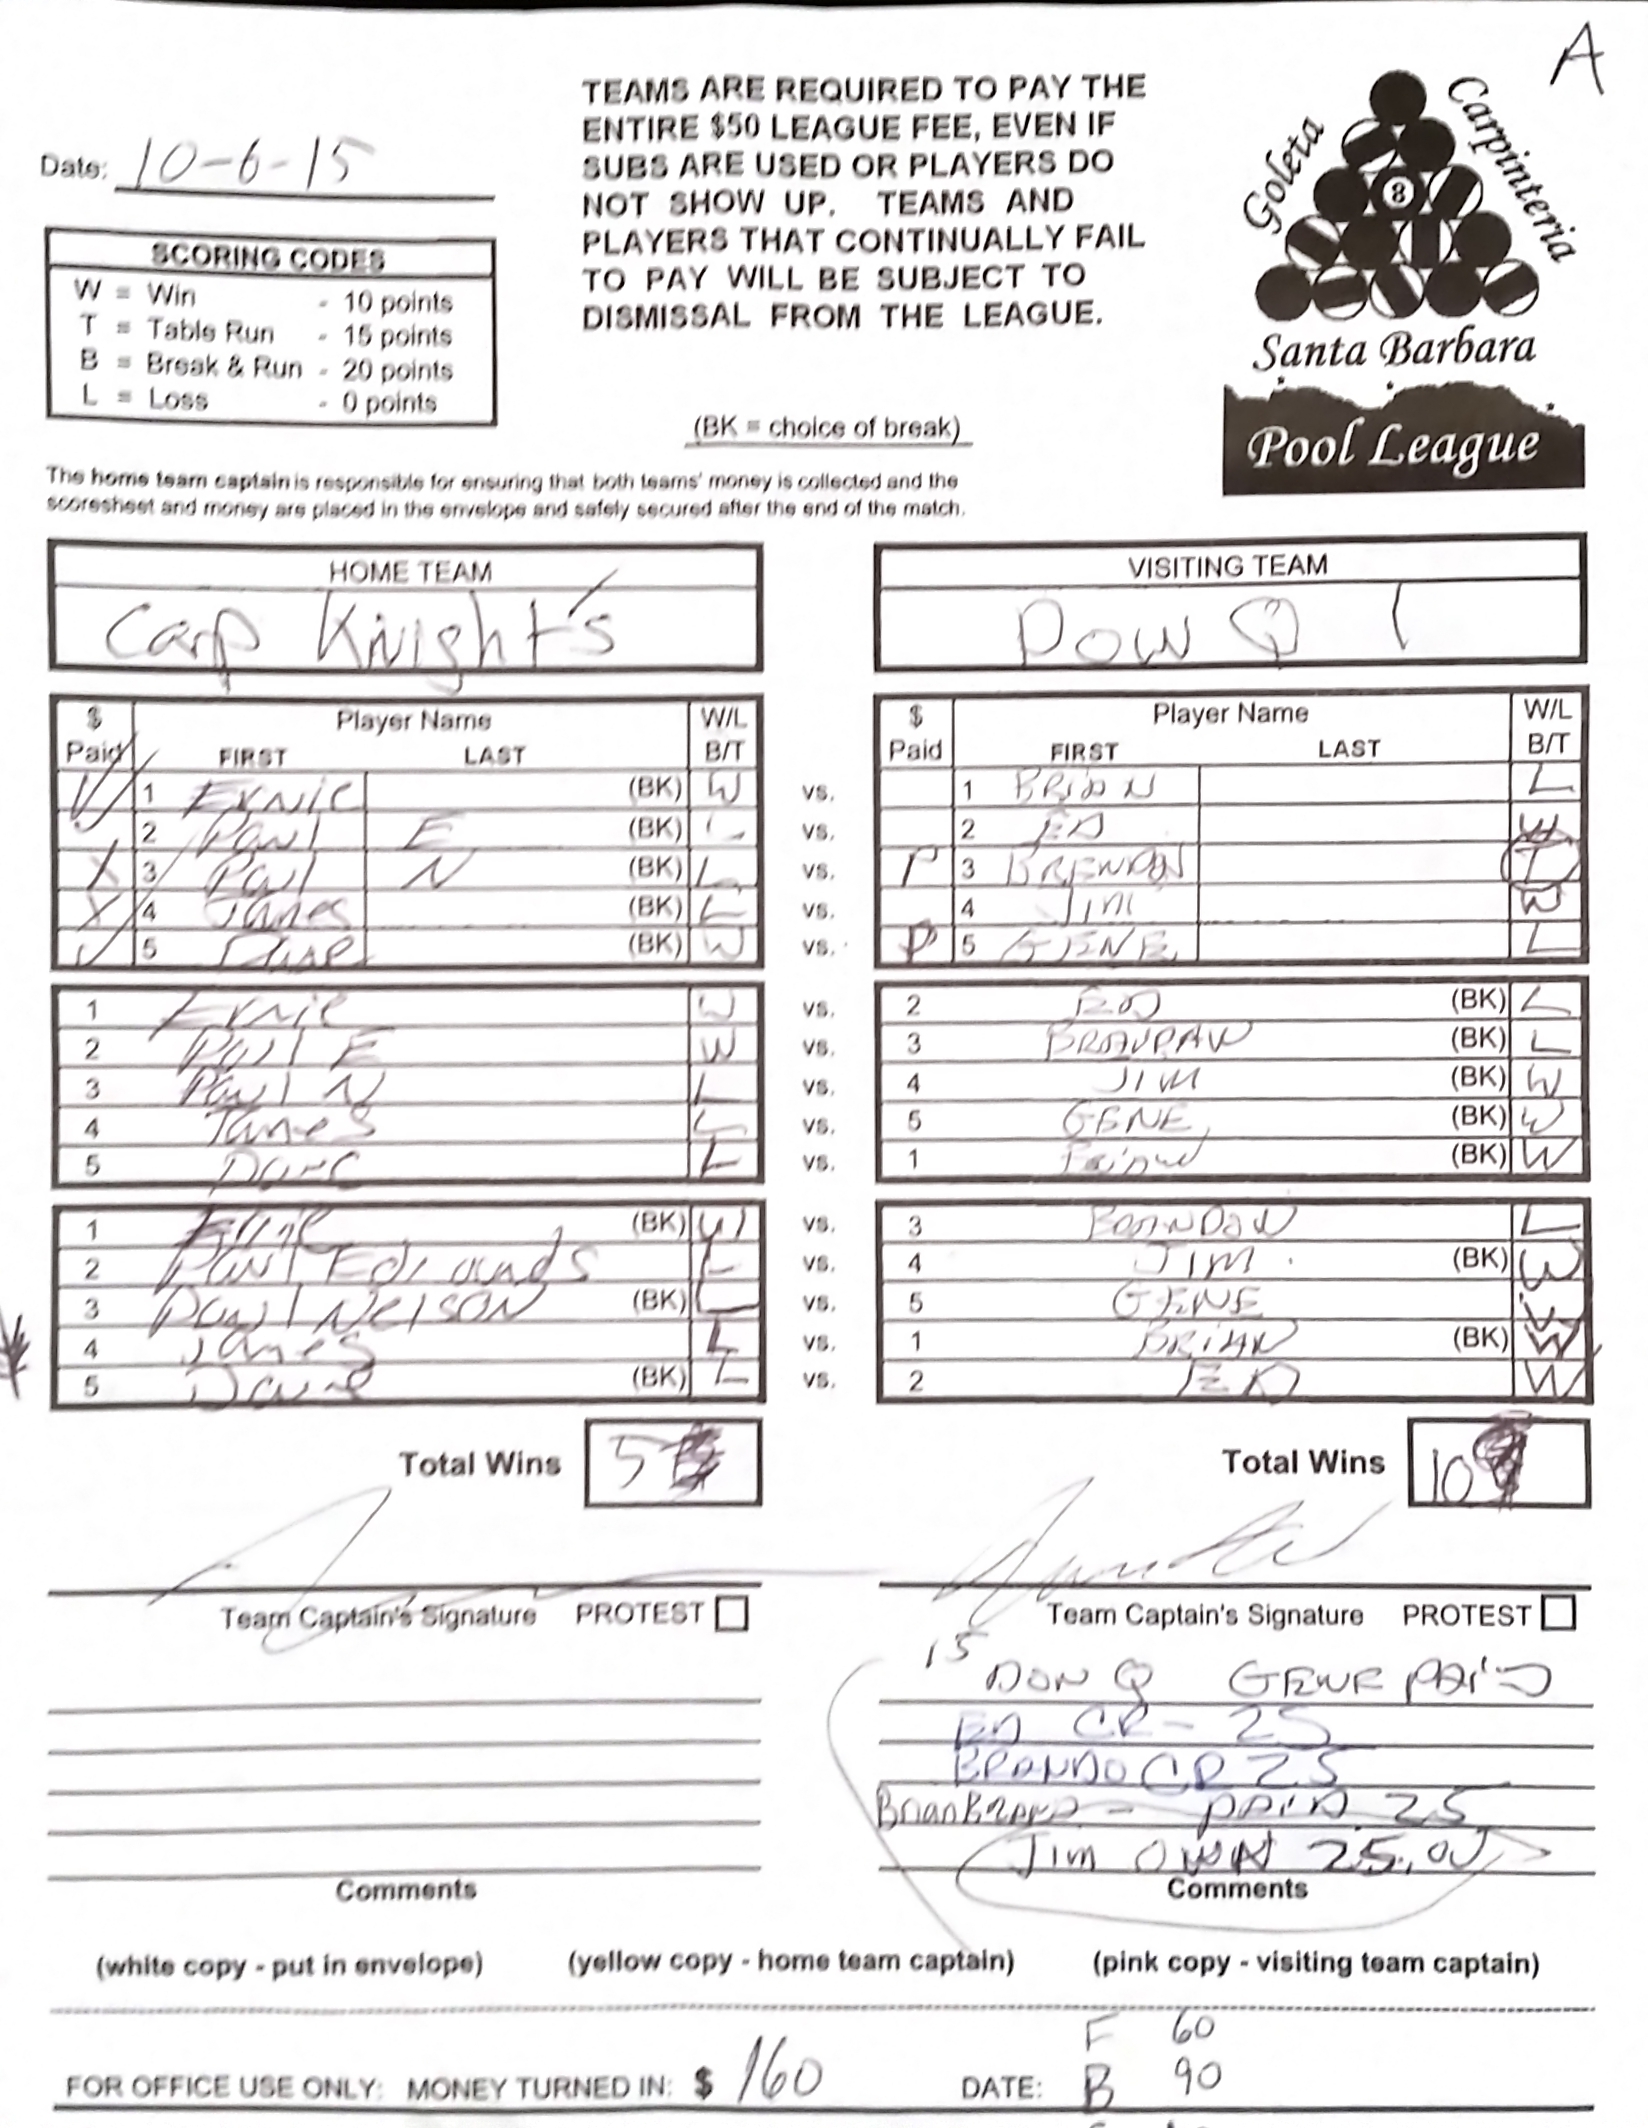 A
Date: 10-6-15
TEAMS ARE REQUIRED TO PAY THE
ENTIRE $50 LEAGUE FEE, EVEN IF
SUBS ARE USED OR PLAYERS DO
NOT SHOW UP. TEAMS AND
PLAYERS THAT CONTINUALLY FAIL
TO PAY WILL BE SUBJECT TO
DISMISSAL FROM THE LEAGUE.
Goleta
Carpinteria
8
Santa Barbara
Pool League
SCORING CODES
W = Win - 10 points
T = Table Run - 15 points
B = Break & Run - 20 points
L = Loss - 0 points
(BK = choice of break)
The home team captain is responsible for ensuring that both teams' money is collected and the
scoresheet and money are placed in the envelope and safely secured after the end of the match.
HOME TEAM VISITING TEAM
Carp Knight's Don Q 1
$ Paid Player Name FIRST LAST W/L B/T $ Paid Player Name FIRST LAST W/L B/T
1 Ernie (BK) W vs. 1 BRIAN L
2 Paul E (BK) L vs. 2 ED W
X 3 Paul N (BK) L vs. P 3 BRENDON T
X 4 James (BK) L vs. 4 Jim W
5 Dave (BK) W vs. P 5 GENE L
1 Ernie W vs. 2 ED (BK) L
2 Paul E W vs. 3 (BK) L
3 Paul N L vs. 4 JIM (BK) W
4 James L vs. 5 GENE (BK) W
5 Dave L vs. 1 Brian (BK) W
1 Ernie (BK) W vs. 3 BRANDON L
2 Paul Edmunds L vs. 4 JIM (BK) W
3 Paul Nelson (BK) L vs. 5 GENE W
4 James L vs. 1 BRIAN (BK) W
5 Dave (BK) L vs. 2 ED W
Total Wins 5 Total Wins 10
Team Captain's Signature PROTEST Team Captain's Signature PROTEST
15 DON Q GENE PAID
ED CR - 25
BRANDO CR 25
- PAID 25
Jim OWN 25.00
Comments Comments
(white copy - put in envelope) (yellow copy - home team captain) (pink copy - visiting team captain)
F 60
FOR OFFICE USE ONLY: MONEY TURNED IN: $ 160 DATE: B 90